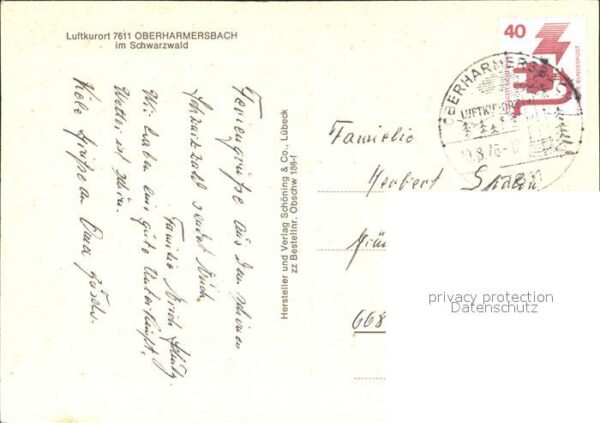 Luftkurort 7611 OBERHARMERSBACH
im Schwarzwald
Feriengrüße aus dem schönen
Schwarzwald sendet Euch
Familie
Wir haben eine gute Unterkunft.
Wetter ist schön.
Viele Grüße an Oma
Hersteller und Verlag Schöning & Co., Lübeck
zz Bestellnr. Obschw 186-I
40
DEUTSCHE BUNDESPOST
OBERHARMERSBACH
LUFTKURORT
10.8.76
Familie
Herbert
668
privacy protection
Datenschutz